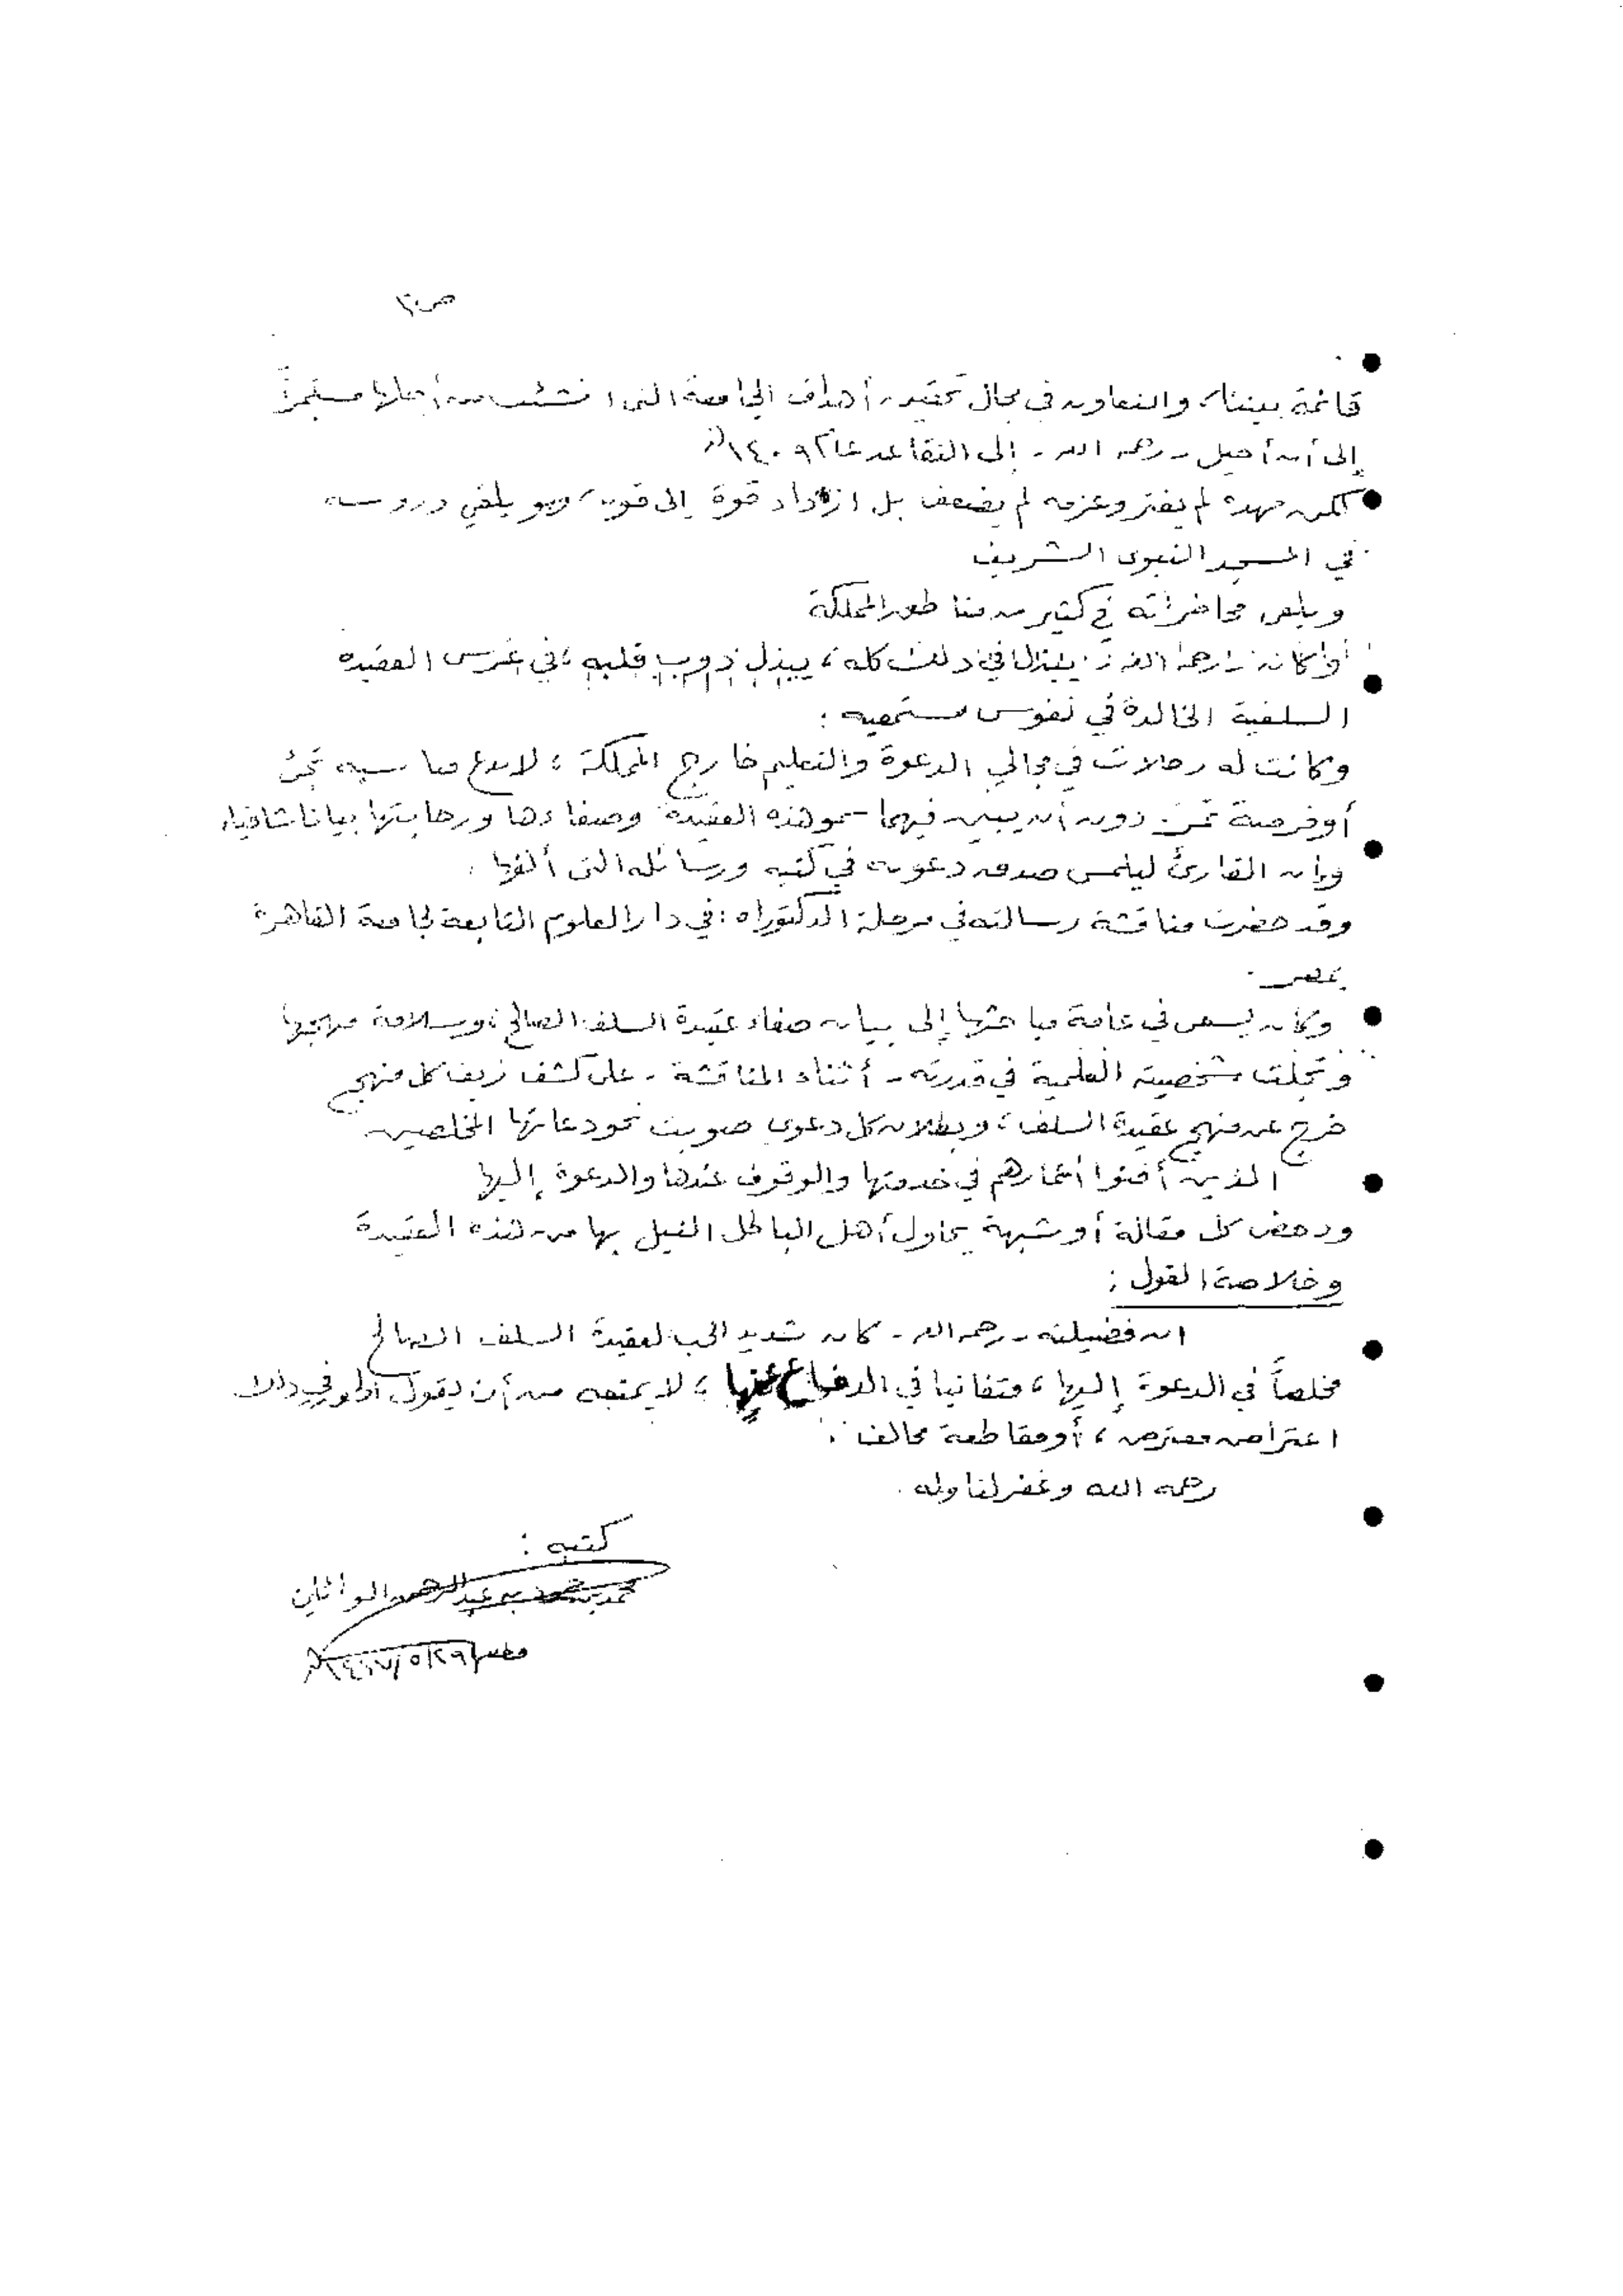 ص٢
قائمة بيننا، والتعاون في مجال تحقيق أهداف الجامعة التي انشئت من أجلها مستمراً
إلى أن أحيل - رحمه الله - إلى التقاعد عام ١٤٠٩هـ
لكن جهده لم يفتر وعزمه لم يضعف بل ازداد قوة إلى قوة، وهو يلقي دروسه
في المسجد النبوى الشريف
ويلقي محاضراته في كثير من مناطق المملكة
وكان - رحمه الله - في ذلك كله، يبذل ذوب قلبه، في غرس العقيدة
السلفية الخالدة في نفوس مستمعيه :
وكانت له رحلات في مجالي الدعوة والتعليم خارج المملكة، لا يدع مناسبة تجئ
أو فرصة تمر دون أن يبين فيها سمو هذه العقيدة وصفاءها ورحابتها بيانا شافيا،
وإن القارئ ليلمس صدق دعوته في كتبه ورسائله التى ألفها .
وقد حضرت مناقشة رسالته في مرحلة الدكتوراه : في دار العلوم التابعة لجامعة القاهرة
بمصر .
وكان يسعى في عامة مباحثها إلى بيان صفاء عقيدة السلف الصالح، وسلامة منهجها
وتجلت شخصيته العلمية في قدرته - أثناء المناقشة - على كشف زيف كل منهج
خرج عن منهج عقيدة السلف، وبطلان كل دعوى صوبت نحو دعاتها المخلصين
الذين أفنوا أعمارهم في خدمتها والوقوف عندها والدعوة إليها
ودحض كل مقالة أو شبهة يحاول أهل الباطل النيل بها من هذه العقيدة
وخلاصة القول :
ان فضيلته - رحمه الله - كان شديد الحب لعقيدة السلف الصالح
مخلصاً في الدعوة إليها، متفانيا في الدفاع عنها، لا يمنعه من أن يقول في ذلك
اعتراض معترض، أو مقاطعة مخالف .
رحمه الله وغفر لنا وله .
كتبه :
محمد بن عبد الرحمن الوائلي